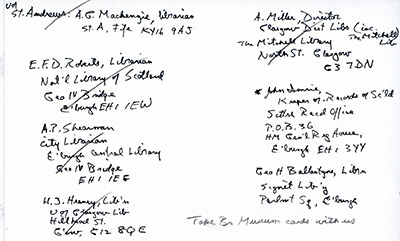 U of
St. Andrews: A.G. Mackenzie, librarian
St. A, Fife KY16 9AJ
E.F.D. Roberts, Librarian
Nat'l Library of Scotland
Geo IV Bridge
E'burgh EH1 1EW
A.P. Shearman
City Librarian
E'burgh Central Library
Geo IV Bridge
EH1 1EG
H.J. Heaney, Lib'n
U of Glasgow Lib
Hillhead St.
G12 8QE
A. Miller, Director
Glasgow Dist Libs (inc.
The Mitchell Library The Mitchell) Lib
North St. Glasgow
G3 7DN
John Imrie,
Keeper of Records of Scl'd
Scttsh Recd Office
P.O.B. 36
HM Gen'l Reg House,
E'burgh EH1 3YY
Geo H Ballantyne, Libn
Signet Lib'y
Parlmt Sq, E'burgh
Take Br Museum cards with us